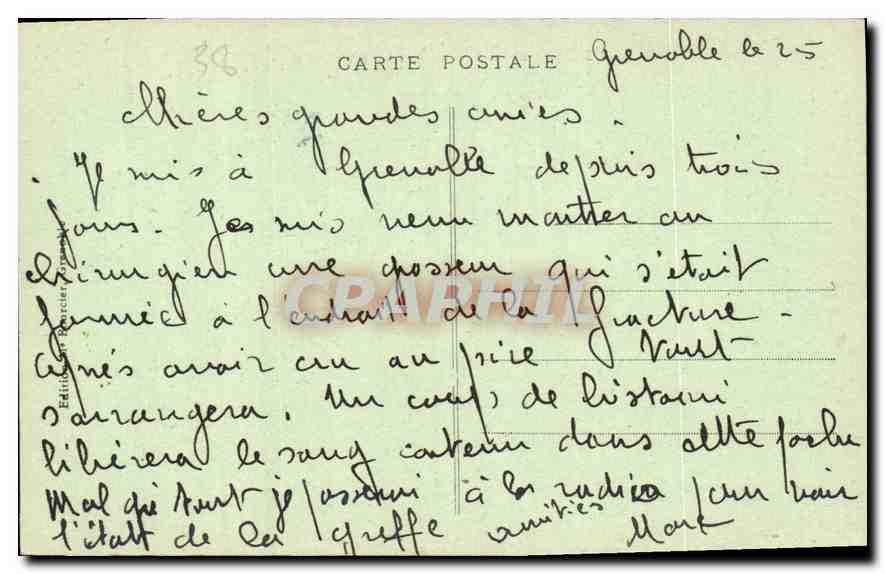 38
CARTE POSTALE
Grenoble le 25
Chères grandes amies.
Je suis à Grenoble depuis trois
jours. Je suis venu montrer au
chirurgien une grosseur qui s'était
formée à l'endroit de la fracture.
Après avoir cru au pire tout
s'arrangera. Un coup de bistouri
libérera le sang contenu dans cette poche
Malgré tout je passerai à la radio pour voir
l'état de la greffe amitiés
Marc
CPAPHIL